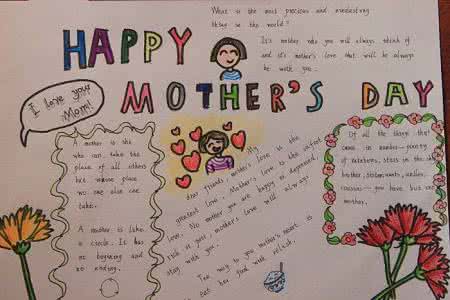 What is the most precious and everlasting
thing in the world?
It's mother who you will always think of
and it's mother's love that will be always
be with you.
HAPPY
MOTHER'S DAY
I love you
Mom!
A mother is she
who can take the
place of all others
but whose place
no one else can
take.
A mother is like
a circle. It has
no beginning and
no ending.
My
dear friends, mother's love is the
greatest love. Mother's love is the safest
love. No matter you are happy or depressed,
rich or poor, mother's love will always
stay with you.
The way to you mother's heart is
eat her food with relish.
Of all the things that
come in number—plenty
of rainbows, stars in the sky
brother, sisters, aunts, uncles,
cousins—you have but one
mother.